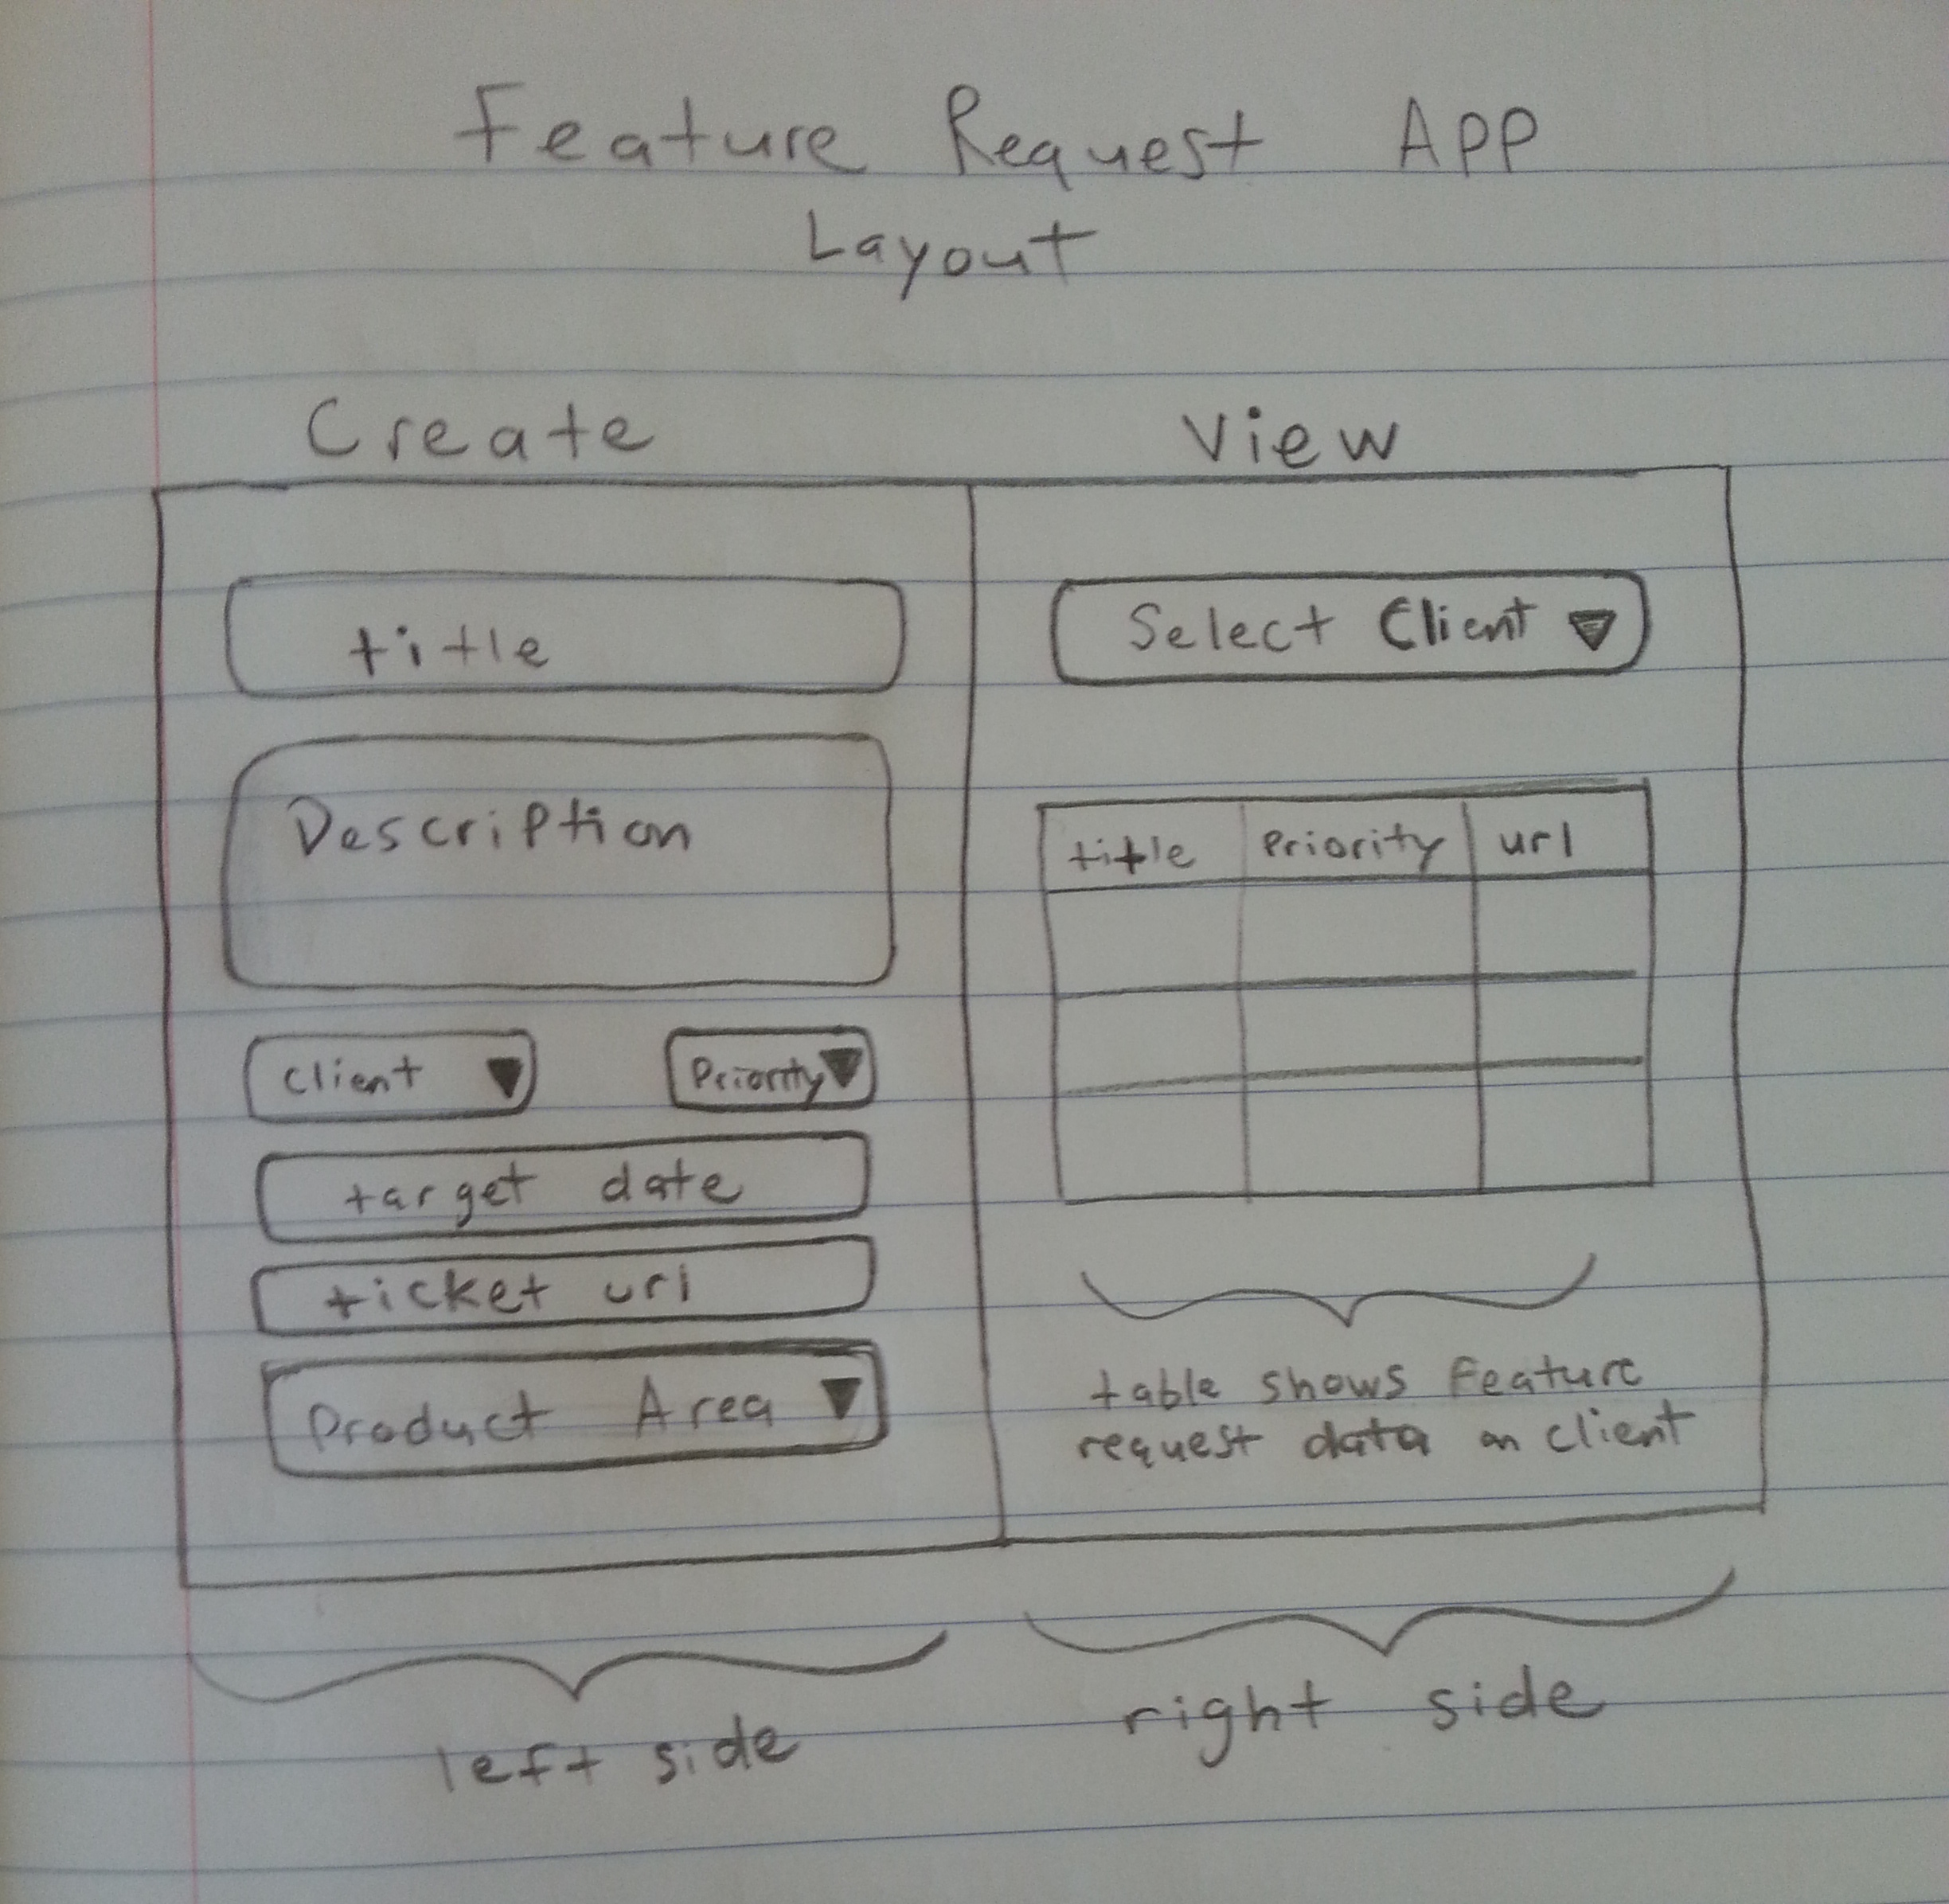 Feature Request APP
Layout
Create
View
title
Description
Client
Priority
target date
ticket url
Product Area
Select Client
title Priority url
table shows Feature
request data on client
left side
right side